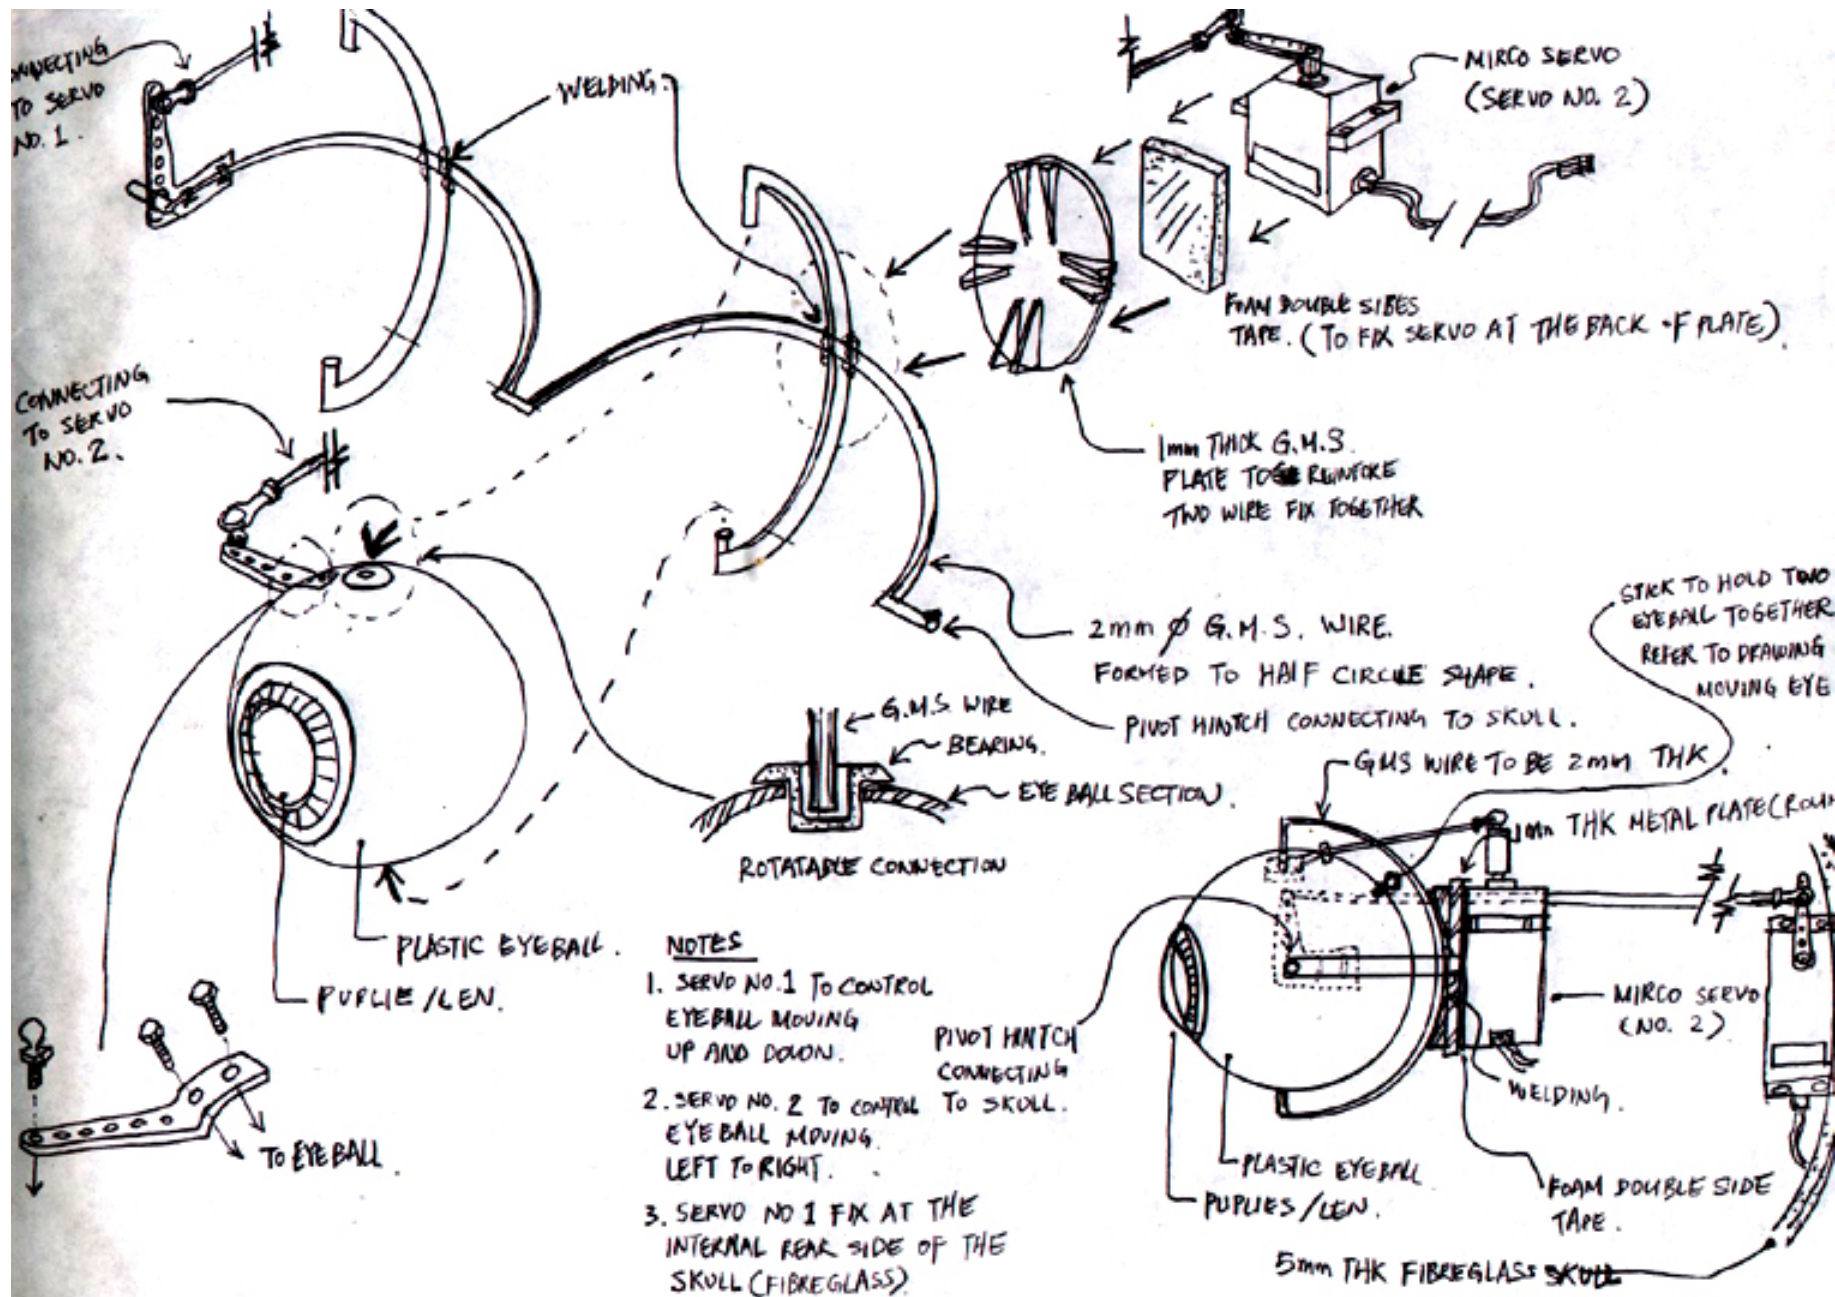 CONNECTING
TO SERVO
NO. 1.
WELDING.
MIRCO SERVO
(SERVO NO. 2)
FOAM DOUBLE SIDES
TAPE. (TO FIX SERVO AT THE BACK OF PLATE).
CONNECTING
TO SERVO
NO. 2.
1mm THICK G.M.S.
PLATE TO REINFORE
TWO WIRE FIX TOGETHER
2mm Ø G.M.S. WIRE.
FORMED TO HALF CIRCLE SHAPE.
PIVOT HINTCH CONNECTING TO SKULL.
STICK TO HOLD TWO
EYEBALL TOGETHER
REFER TO DRAWING
MOVING EYE
G.M.S. WIRE
BEARING.
EYE BALL SECTION.
ROTATABLE CONNECTION
GMS WIRE TO BE 2mm THK.
1mm THK METAL PLATE (ROUN
PLASTIC EYEBALL.
PUPLIE/LEN.
TO EYEBALL.
NOTES
1. SERVO NO.1 TO CONTROL
EYEBALL MOVING
UP AND DOWN.
2. SERVO NO. 2 TO CONTROL
EYEBALL MOVING.
LEFT TO RIGHT.
3. SERVO NO 1 FIX AT THE
INTERNAL REAR SIDE OF THE
SKULL (FIBREGLASS)
PIVOT HINTCH
CONNECTING
TO SKULL.
MIRCO SERVO
(NO. 2)
WELDING.
PLASTIC EYEBALL
PUPLIES/LEN.
FOAM DOUBLE SIDE
TAPE.
5mm THK FIBREGLASS SKULL